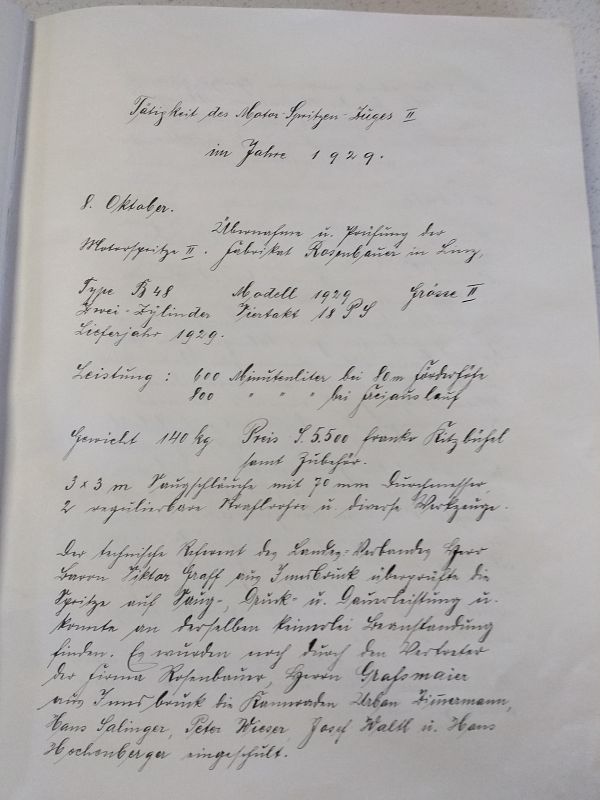 Tätigkeit des Motor-Spritzen-Zuges II
im Jahre 1929.
8. Oktober.
Übernahme u. Prüfung der
Motorspritze II. Fabrikat Rosenbauer in Linz,
Type B 48 Modell 1929 Grösse II
Zwei-Zylinder Viertakt 18 PS
Lieferjahr 1929.
Leistung: 600 Minutenliter bei 80 m Förderhöhe
800 " " " bei Freiauslauf
Gewicht 140 kg Preis S. 5.500 franko Kitzbühel
samt Zubehör.
3 x 3 m Saugschläuche mit 70 mm Durchmesser,
2 regulierbare Strahlrohre u. diverse Werkzeuge.
Der technische Referent des Landes-Verbandes Herr
Baron Viktor Graff aus Innsbruck überprüfte die
Spritze auf Saug-, Druck- u. Dauerleistung u.
konnte an derselben keinerlei Beanstandung
finden. Es wurden noch durch den Vertreter
der Firma Rosenbauer, Herrn Grafsmaier
aus Innsbruck die Kameraden Urban Zimmermann,
Hans Salinger, Peter Wieser, Josef Waltl u. Hans
Hochenberger eingeschult.